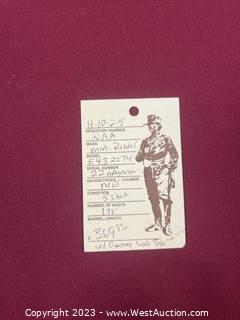 U 10-2-5
INVENTORY NUMBER
NAA
MAKE
Mini-
MODEL
E432074
SERIAL NUMBER
22 magnum
GAUGE/CHOKE - CALIBER
NEW
CONDITION
5 shot
NUMBER OF SHOTS
1 5/8
BARREL LENGTH
$ 369
w/
Copyright © 2023 - www.WestAuction.com